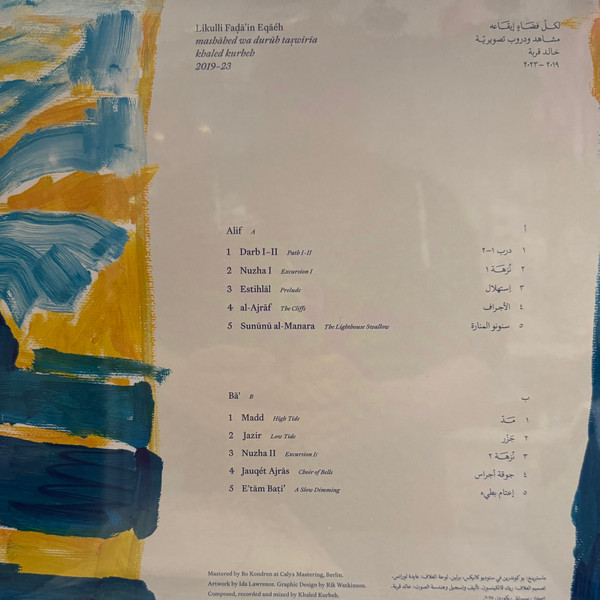 Likulli Faḍā'in Eqāéh
mashāhed wa durūb taṣwiría
khaled kurbeh
2019–23
لكلّ فضاءٍ إيقاعه
مشاهد ودروب تصويريّة
خالد قربة
٢٠١٩ – ٢٠٢٣
Alif A
1 Darb I–II Path I-II
2 Nuzha I Excursion I
3 Estihlāl Prelude
4 al-Ajrāf The Cliffs
5 Sunūnū al-Manara The Lighthouse Swallow
أ
١ درب ١–٢
٢ نُزهَة ١
٣ إستهلال
٤ الأجراف
٥ سنونو المنارة
Bā' B
1 Madd High Tide
2 Jazir Low Tide
3 Nuzha II Excursion Ii
4 Jauqét Ajrās Choir of Bells
5 E'tām Baṭi' A Slow Dimming
ب
١ مَدّ
٢ جَزْر
٣ نُزهَة ٢
٤ جوقة أجراس
٥ إعتام بطيء
Mastered by Bo Kondren at Calyx Mastering, Berlin.
Artwork by Ida Lawrence. Graphic Design by Rik Watkinson.
Composed, recorded and mixed by Khaled Kurbeh.
ماسترينغ: بو كوندرين في ستوديو كاليكس، برلين. لوحة الغلاف: عايدة لورانس.
تصميم الغلاف: ريك واتكينسون. تأليف وتسجيل وهندسة الصوت: خالد قربة.